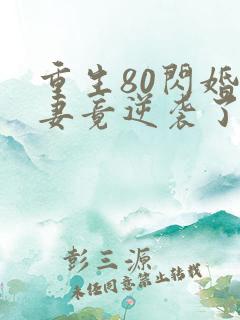 重生80閃婚
妻竟逆袭了
彭三源
未任同意禁止转载